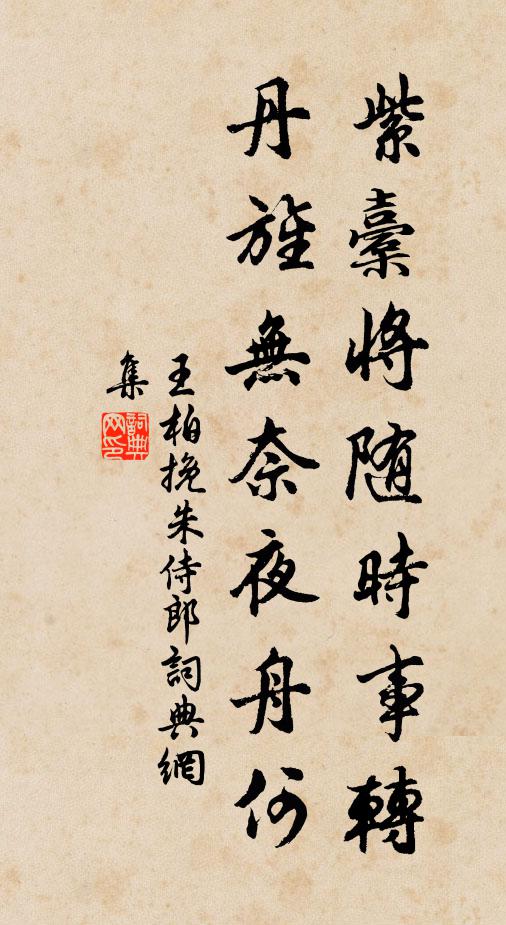 紫橐將随時事轉
丹旌無奈夜舟何
王柏挽朱侍郎詞典網
集
詞典
网印